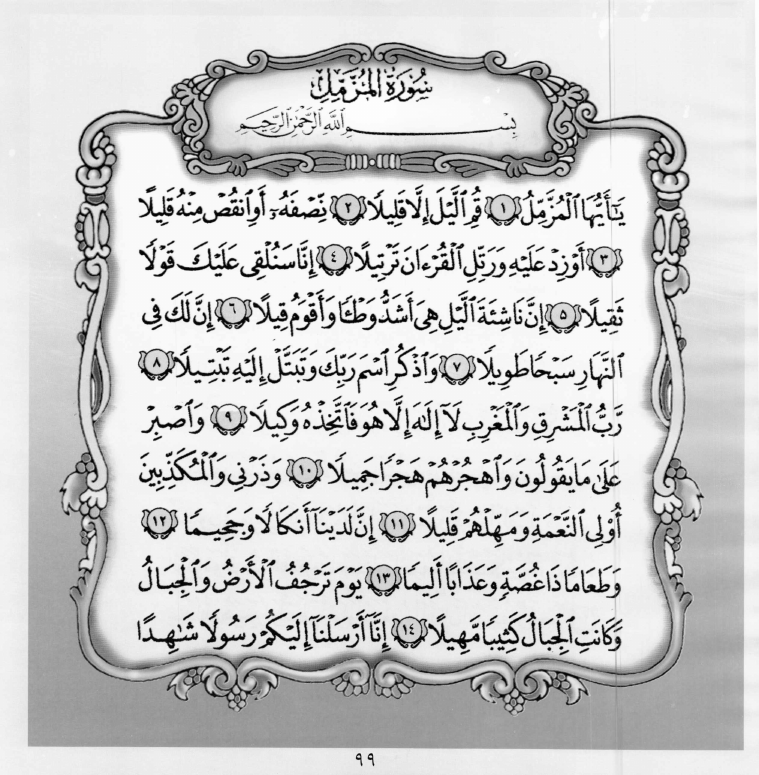 سُورَةُ الْمُزَّمِّلِ
بِسْمِ ٱللَّهِ ٱلرَّحْمَٰنِ ٱلرَّحِيمِ
يَٰٓأَيُّهَا ٱلْمُزَّمِّلُ ١ قُمِ ٱلَّيْلَ إِلَّا قَلِيلًا ٢ نِّصْفَهُۥٓ أَوِ ٱنقُصْ مِنْهُ قَلِيلًا
٣ أَوْ زِدْ عَلَيْهِ وَرَتِّلِ ٱلْقُرْءَانَ تَرْتِيلًا ٤ إِنَّا سَنُلْقِى عَلَيْكَ قَوْلًا
ثَقِيلًا ٥ إِنَّ نَاشِئَةَ ٱلَّيْلِ هِىَ أَشَدُّ وَطْـًٔا وَأَقْوَمُ قِيلًا ٦ إِنَّ لَكَ فِى
ٱلنَّهَارِ سَبْحًا طَوِيلًا ٧ وَٱذْكُرِ ٱسْمَ رَبِّكَ وَتَبَتَّلْ إِلَيْهِ تَبْتِيلًا ٨
رَّبُّ ٱلْمَشْرِقِ وَٱلْمَغْرِبِ لَآ إِلَٰهَ إِلَّا هُوَ فَٱتَّخِذْهُ وَكِيلًا ٩ وَٱصْبِرْ
عَلَىٰ مَا يَقُولُونَ وَٱهْجُرْهُمْ هَجْرًا جَمِيلًا ١٠ وَذَرْنِى وَٱلْمُكَذِّبِينَ
أُو۟لِى ٱلنَّعْمَةِ وَمَهِّلْهُمْ قَلِيلًا ١١ إِنَّ لَدَيْنَآ أَنكَالًا وَجَحِيمًا ١٢
وَطَعَامًا ذَا غُصَّةٍ وَعَذَابًا أَلِيمًا ١٣ يَوْمَ تَرْجُفُ ٱلْأَرْضُ وَٱلْجِبَالُ
وَكَانَتِ ٱلْجِبَالُ كَثِيبًا مَّهِيلًا ١٤ إِنَّآ أَرْسَلْنَآ إِلَيْكُمْ رَسُولًا شَٰهِدًا
٩٩